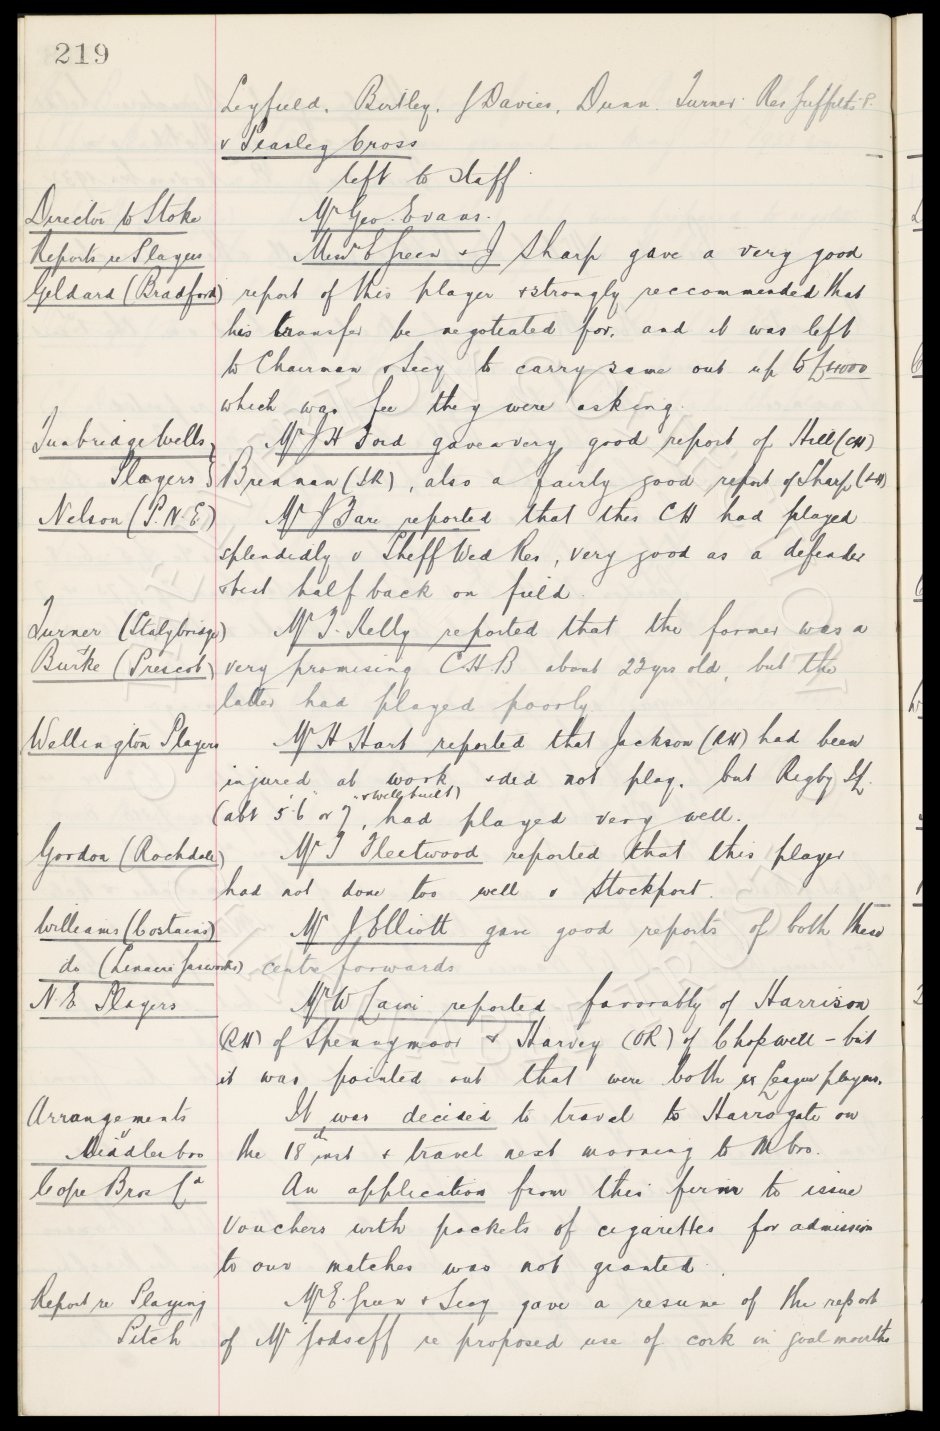 219
Leyfield. Birtley. J Davies, Dunn. Turner Res Griffiths P.
v Peasley Cross
left to staff
Director to Stoke
Mr Geo. Evans.
Reports re Players
Messrs E Green & J Sharp gave a very good
Geldard (Bradford) report of this player & strongly reccommended that
his transfer be negotiated for, and it was left
to Chairman & Secy to carry same out up to £4000
which was fee they were asking.
Tunbridge Wells Mr J H Ford gave a very good report of Hill (CH)
Players } Brennan (IR), also a fairly good report of Sharp (LH)
Nelson (P.N.E.) Mr J Fare reported that this CH had played
splendidly v Sheff Wed Res, very good as a defender
& best half back on field.
Turner (Stalybridge) Mr T. Kelly reported that the former was a
Burke (Prescot) very promising CHB about 22 yrs old, but the
latter had played poorly
Wellington Players Mr H Hart reported that Jackson (RH) had been
injured at work & did not play, but Rigby IL
(abt 5'6" or 7" & well built), had played very well.
Gordon (Rochdale) Mr T Fleetwood reported that this player
had not done too well v Stockport.
Williams (Costains) Mr J Elliott gave good reports of both these
do (Linacre Gasworks) centre forwards
N.E. Players Mr W Laini reported favorably of Harrison
(RH) of Spennymoor & Harvey (OR) of Chopwell - but
it was pointed out that were both ex League players.
Arrangements It was decided to travel to Harrogate on
Middlesbro the 18th inst & travel next morning to Mbro.
Cope Bros Co An application from this firm to issue
vouchers with packets of cigarettes for admission
to our matches was not granted.
Report re Playing Mr E. Green & Secy gave a resume of the report
Pitch of Mr re proposed use of cork in goal mouths